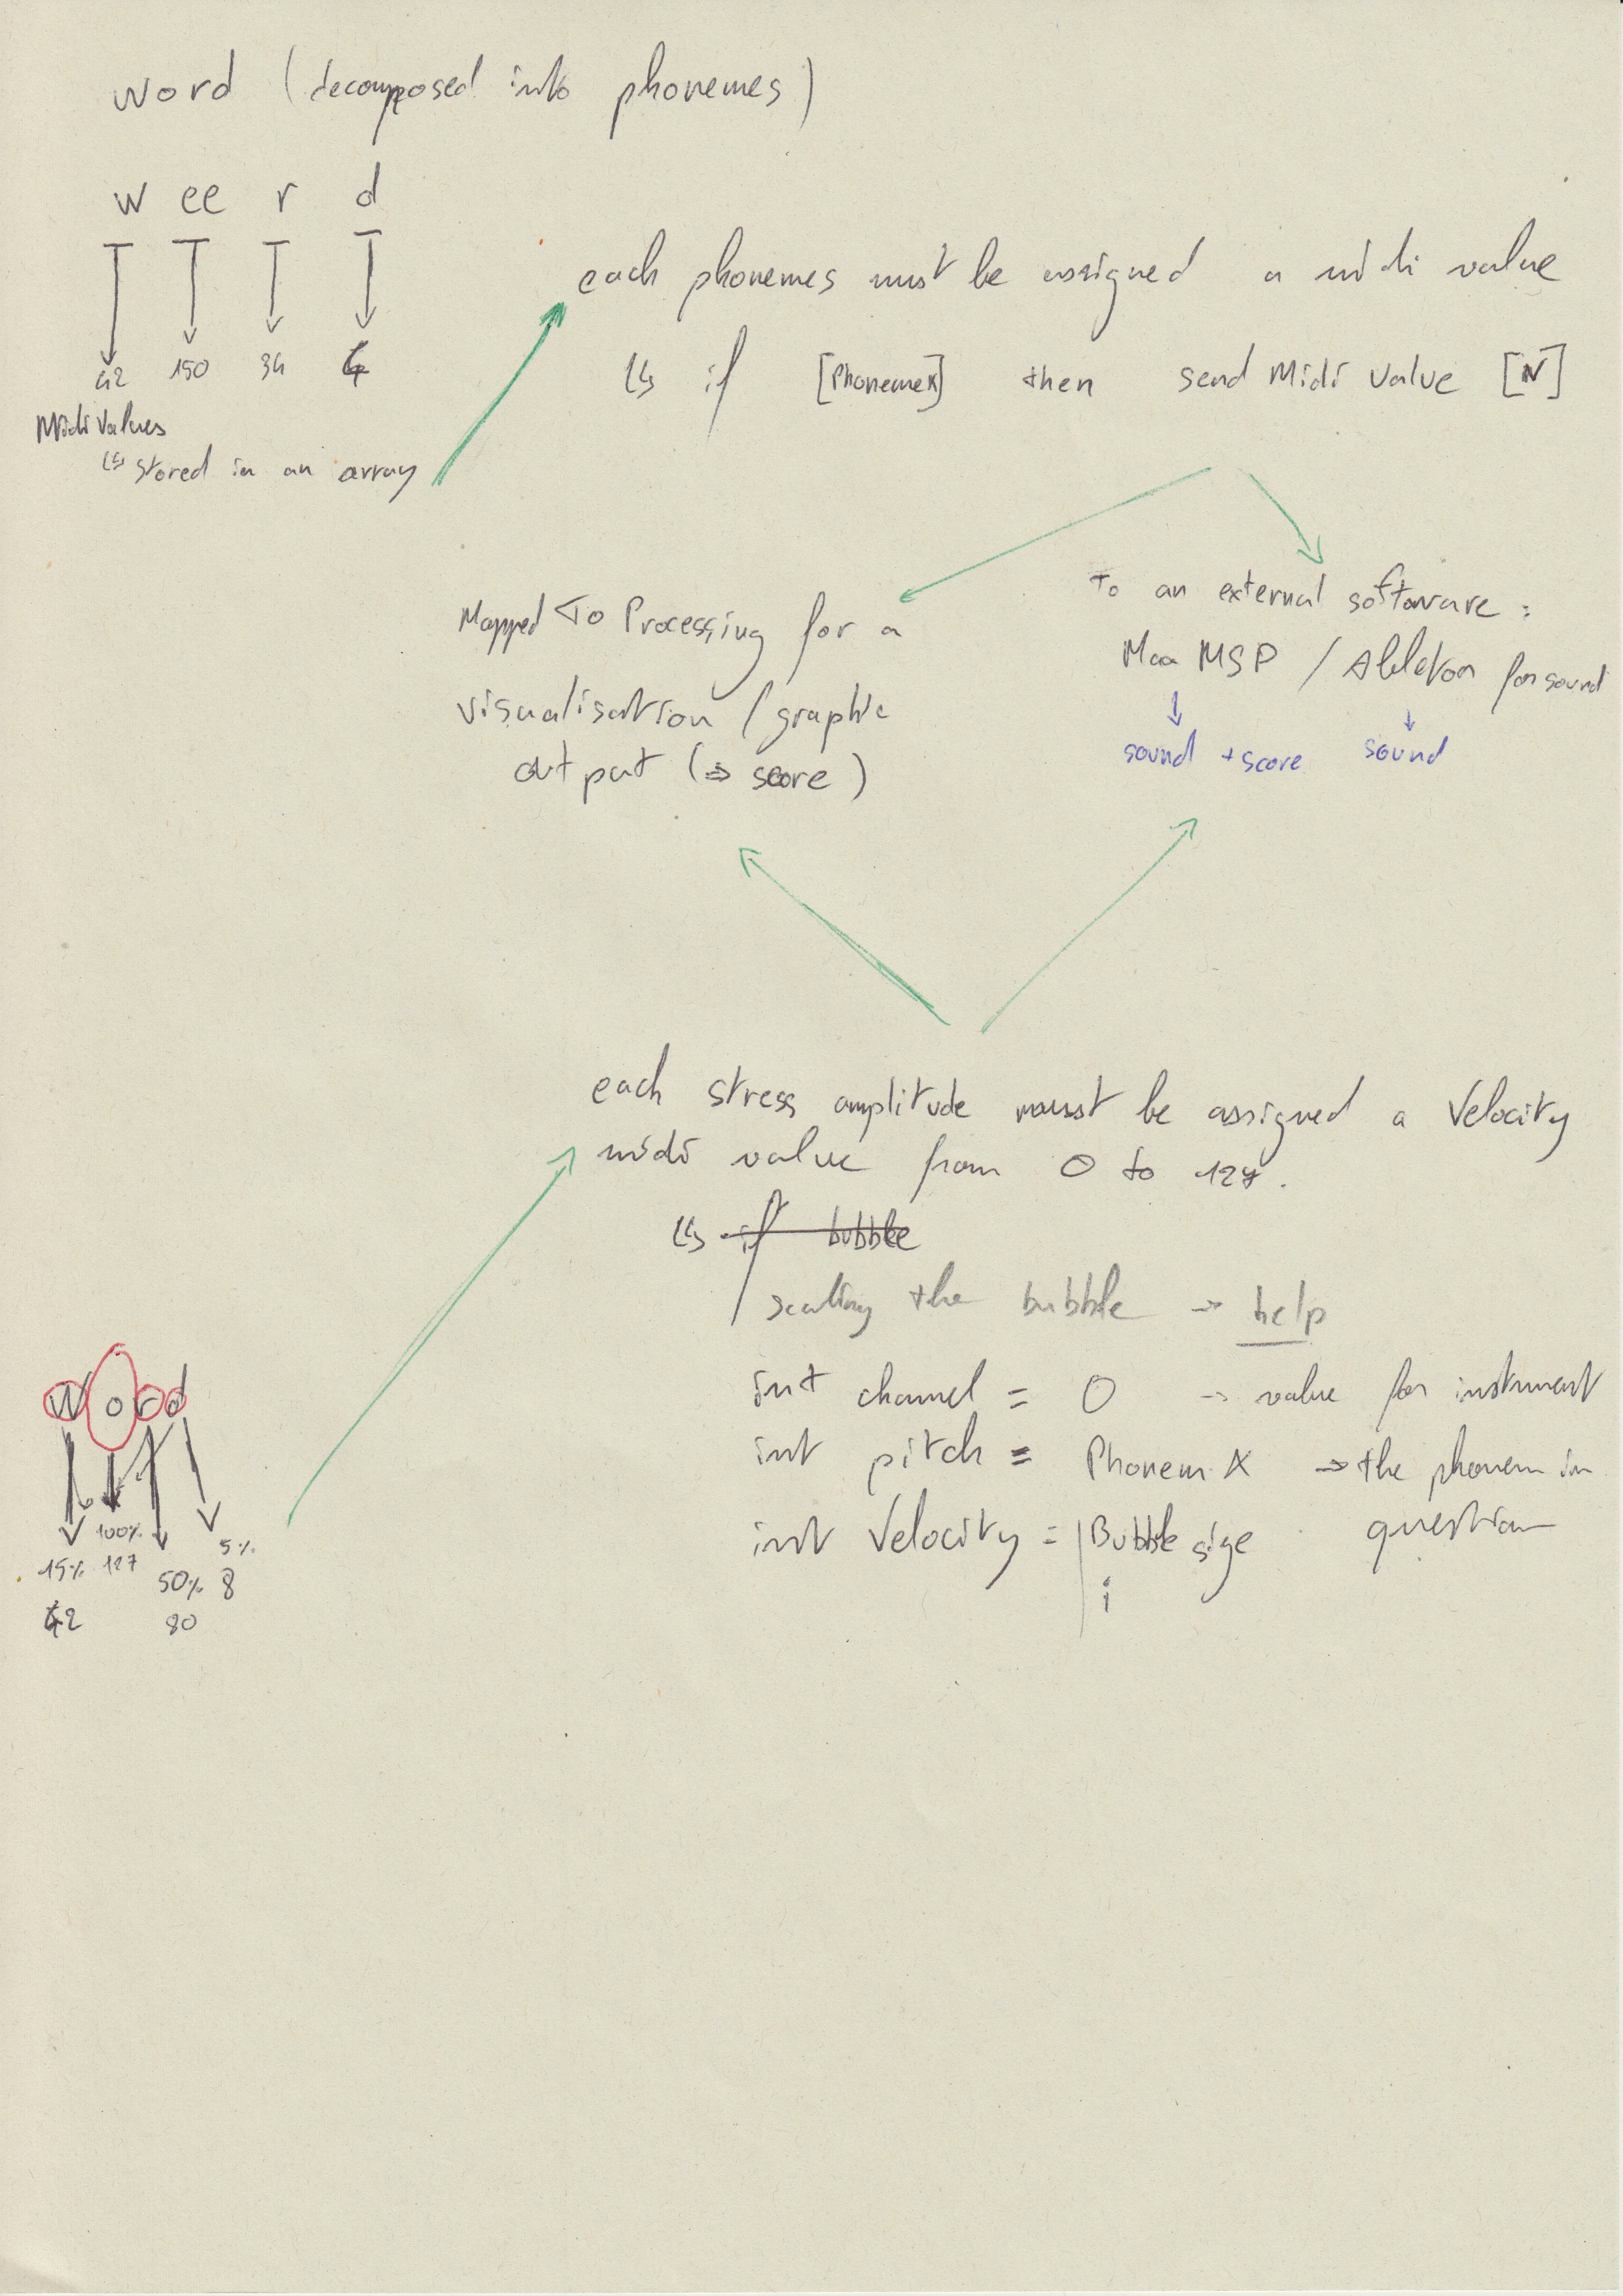 word (decomposed into phonemes)
w ee r d
42 150 34 4
Midi Values
↳ stored in an array
each phonemes must be assigned a midi value
↳ if [PhonemeX] then send Midi Value [N]
Mapped To Processing for a
visualisation / graphic
output (⇒ score)
To an external software :
Max MSP / Ableton for sound
sound + score sound
each stress amplitude must be assigned a Velocity
midi value from 0 to 127.
↳ if bubble
scaling the bubble → help
int channel = 0 → value for instrument
int pitch = Phonem X → the phonem in
question
int Velocity = Bubble size
i
word
15% 100% 50% 5%
42 127 80 8